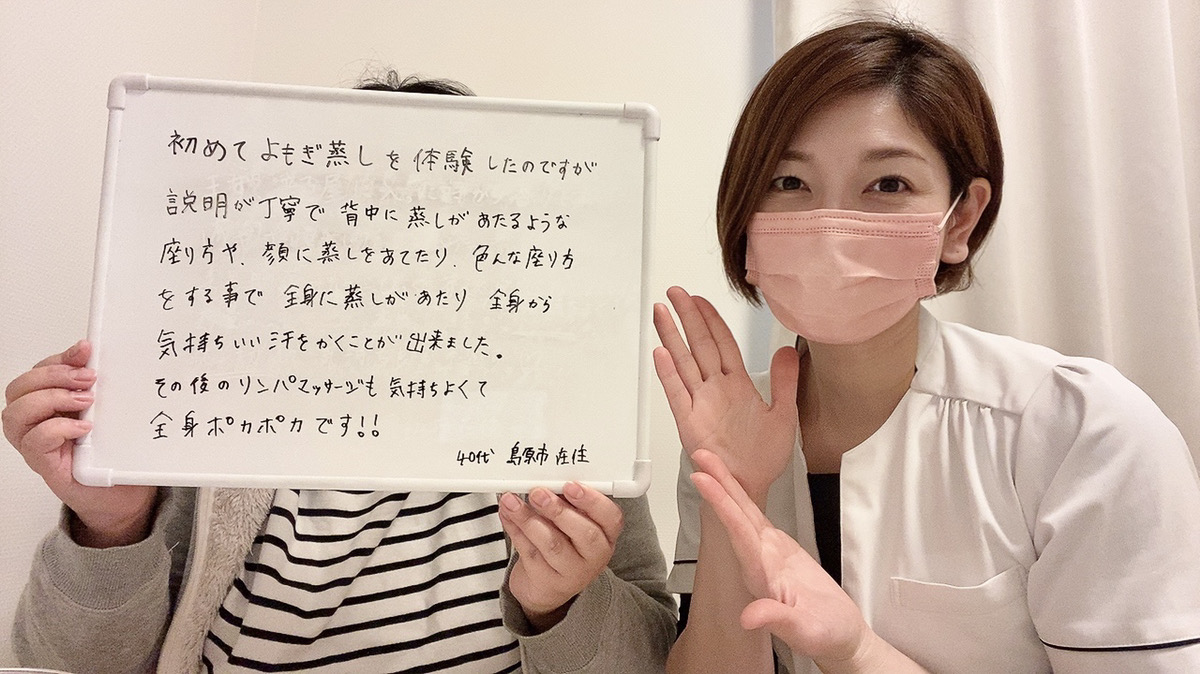 初めてよもぎ蒸しを体験したのですが
説明が丁寧で 背中に蒸しがあたるような
座り方や、顔に蒸しをあてたり、色んな座り方
をする事で 全身に蒸しがあたり 全身から
気持ちいい汗をかくことが出来ました。
その後のリンパマッサージも気持ちよくて
全身ポカポカです!!
40代 島原市在住